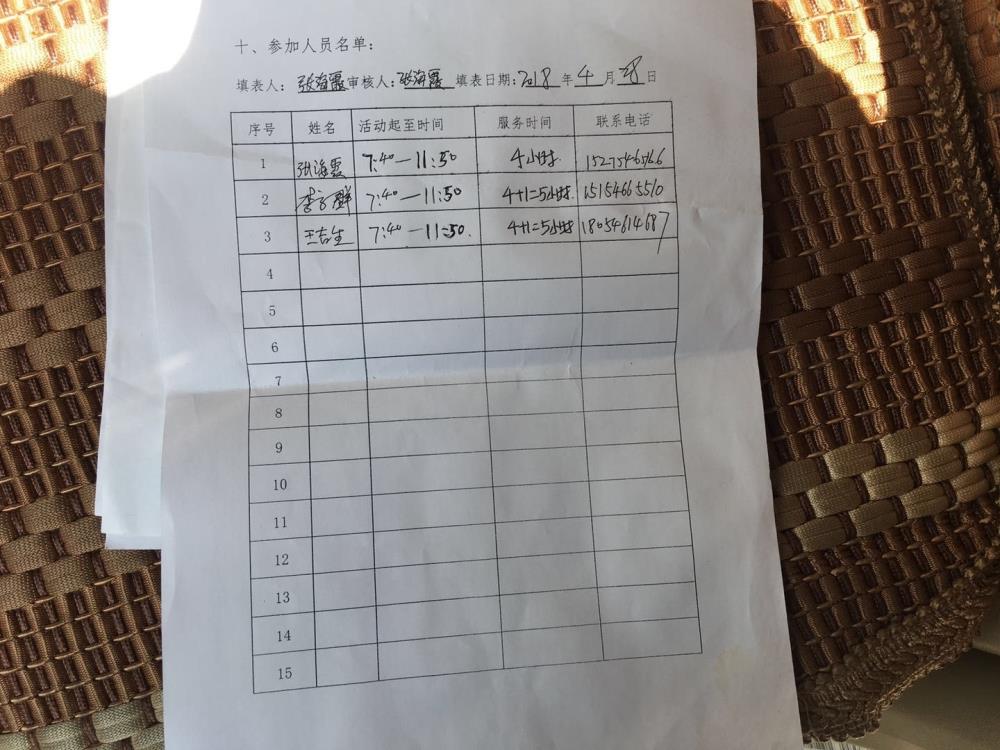 十、参加人员名单：
填表人：张海霞 审核人：张海霞 填表日期：2018 年 4 月 28 日
序号 姓名 活动起至时间 服务时间 联系电话
1 张海霞 7:40—11:50 4小时. 15275465166
2 7:40—11:50 4+1=5小时. 15154665510
3 7:40—11:50. 4+1=5小时 18054614687
4
5
6
7
8
9
10
11
12
13
14
15